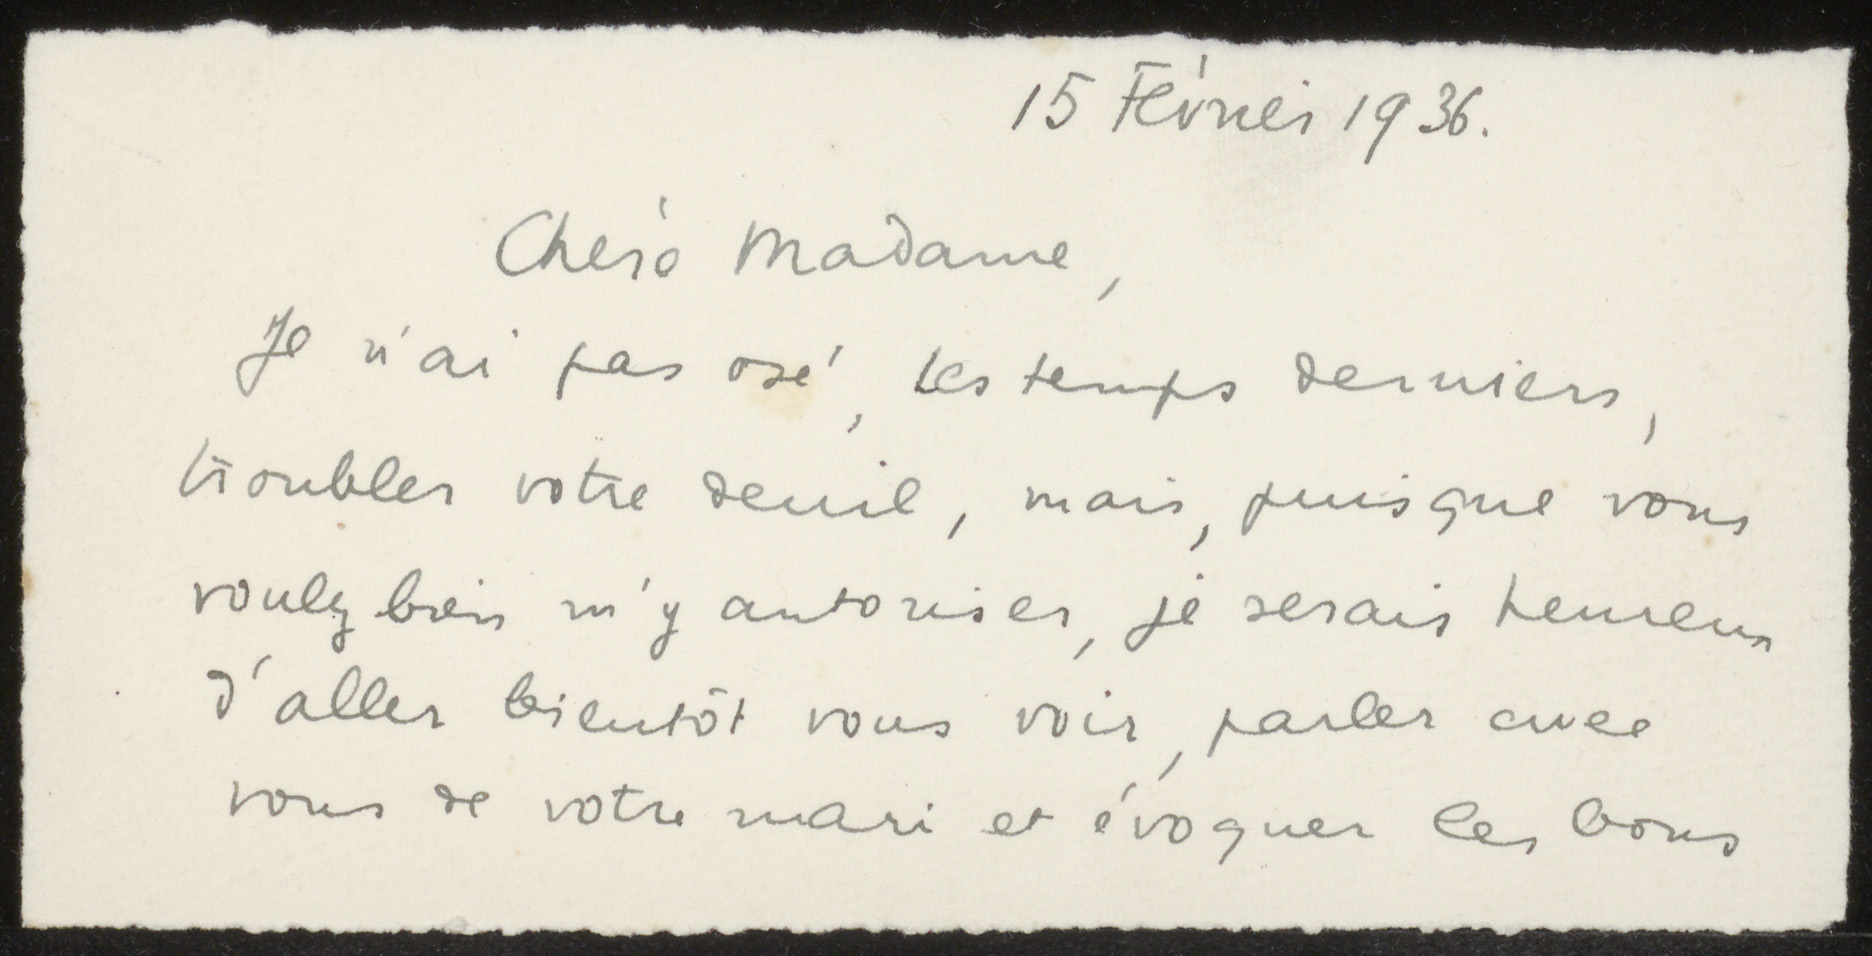 15 Février 1936.
Chère Madame,
Je n'ai pas osé, les temps derniers,
troubler votre deuil, mais, puisque vous
voulez bien m'y autoriser, je serais heureux
d'aller bientôt vous voir, parler avec
vous de votre mari et évoquer les bons